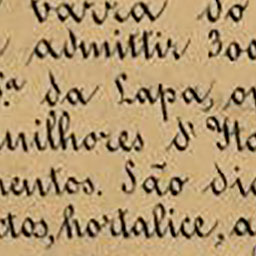 barra do
admittir 300
S.ª da Lapa, on
milhores d'Ita
mentos. São dig
ctos, hortalice, a